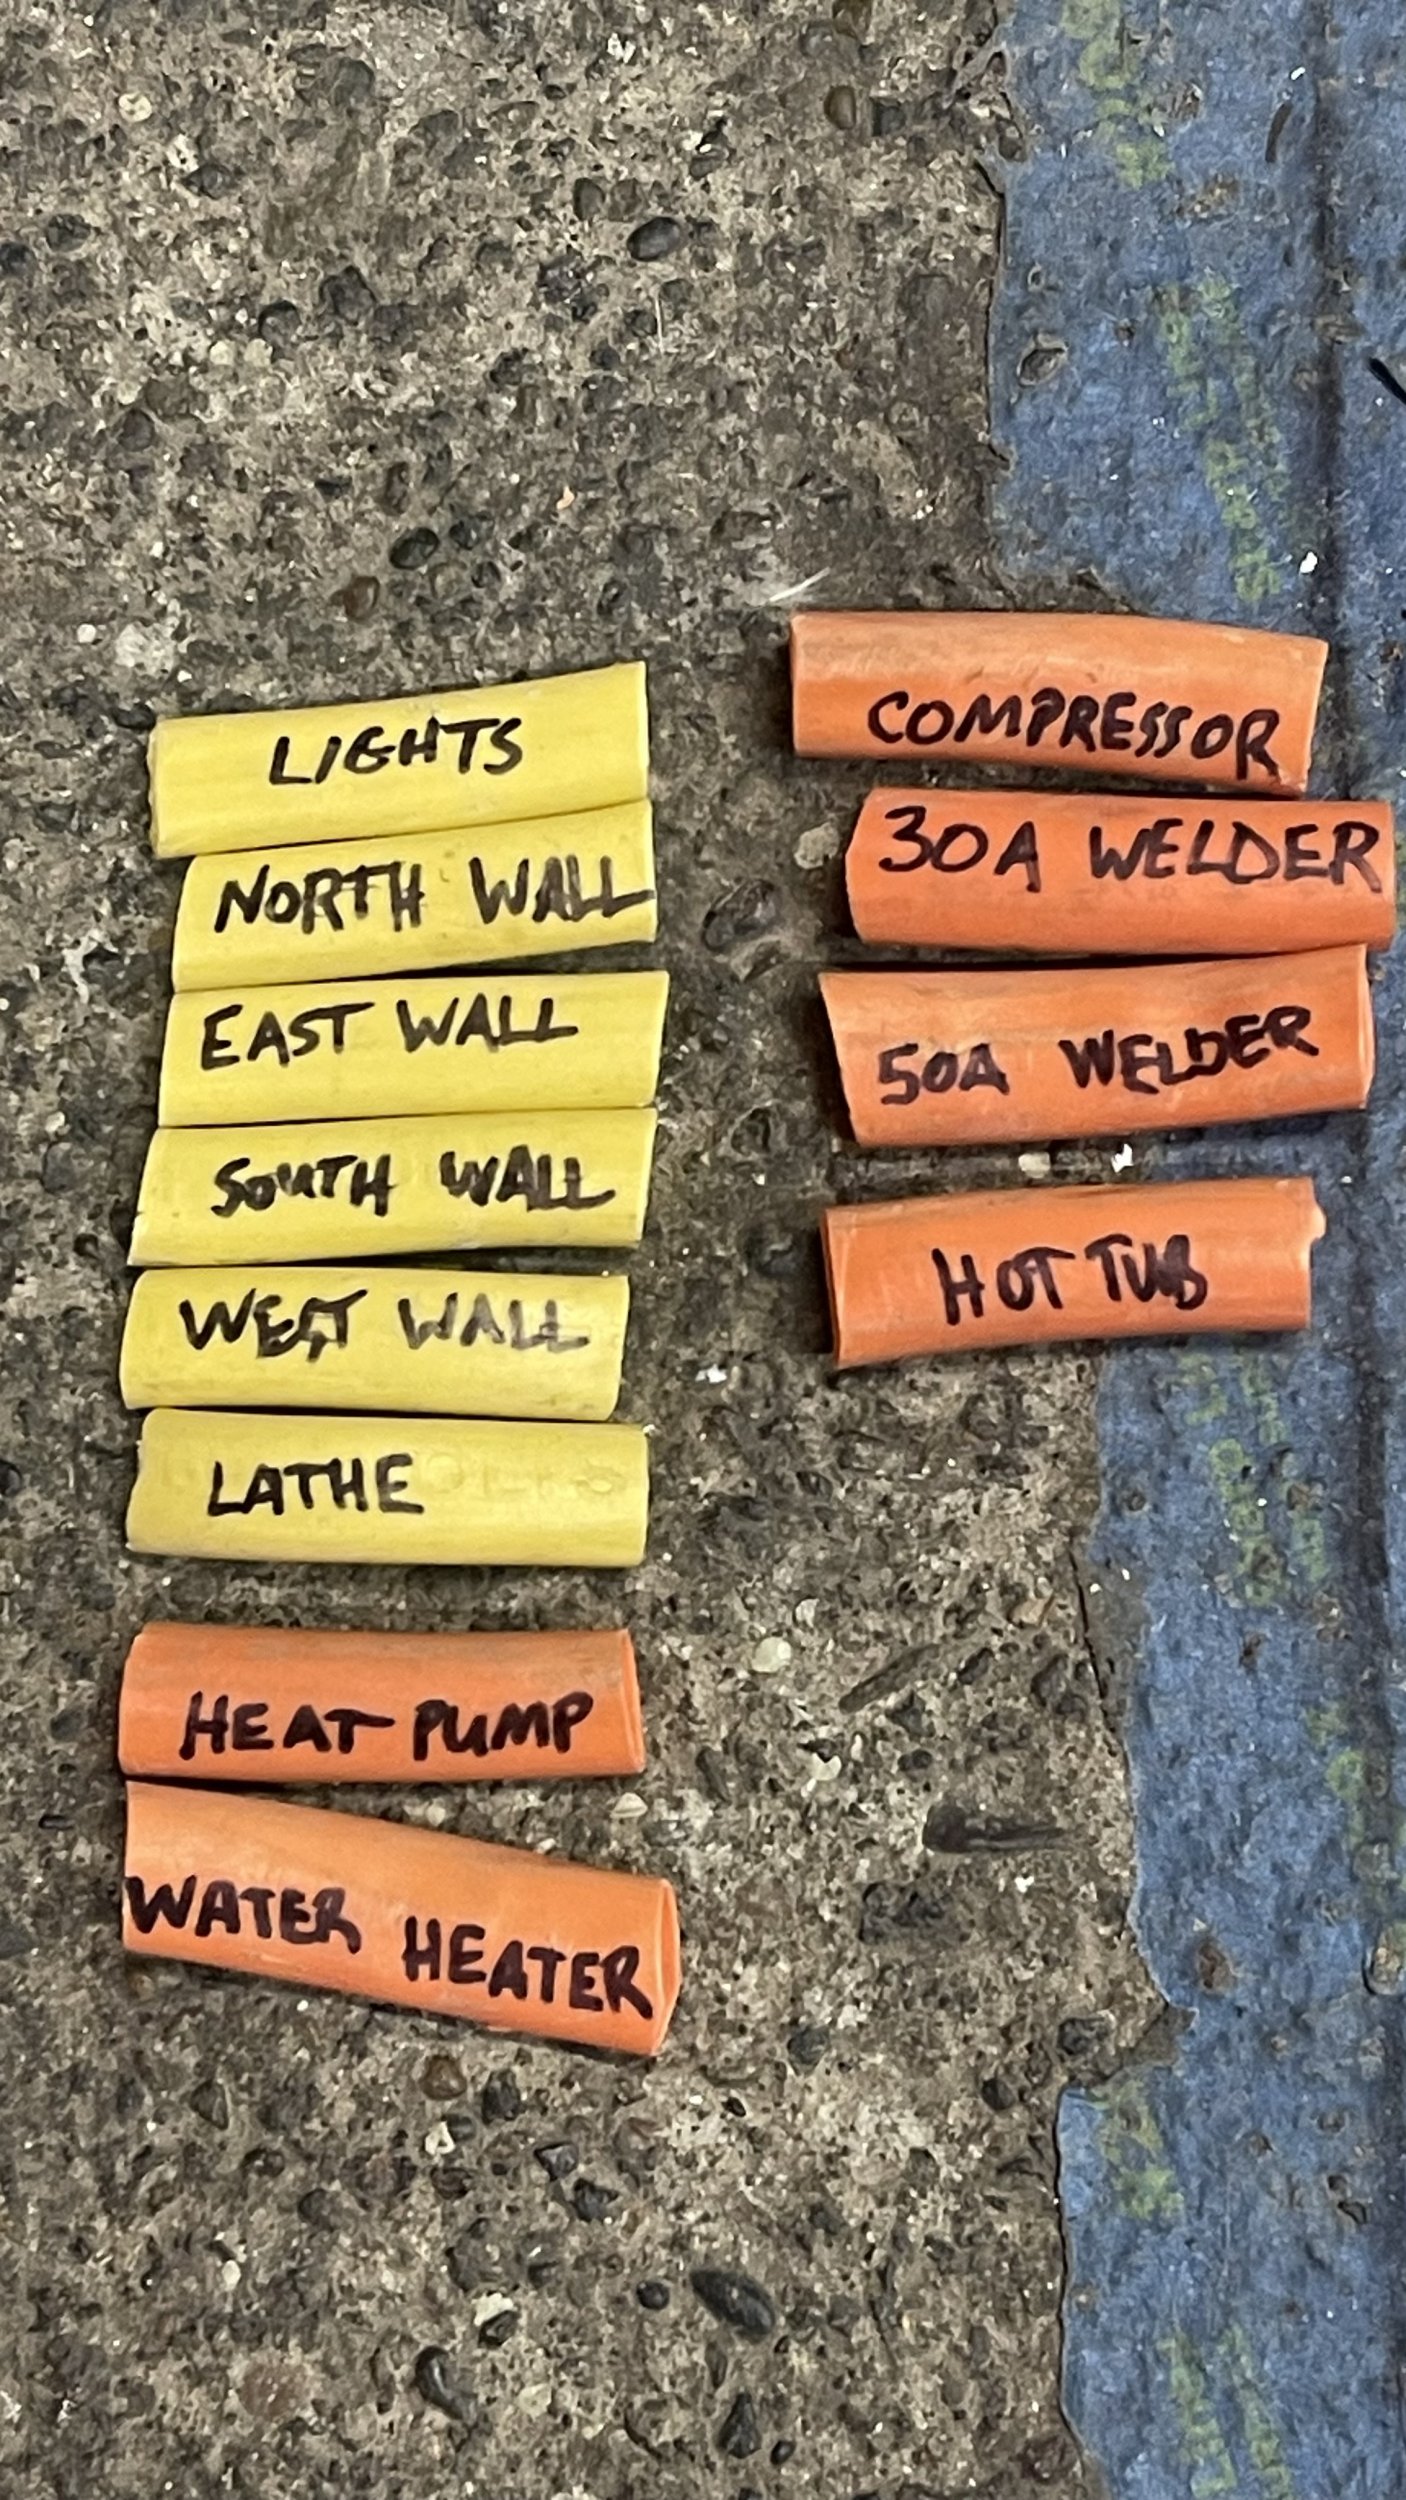 LIGHTS
NORTH WALL
EAST WALL
SOUTH WALL
WEST WALL
LATHE
HEAT PUMP
WATER HEATER
COMPRESSOR
30A WELDER
50A WELDER
HOT TUB